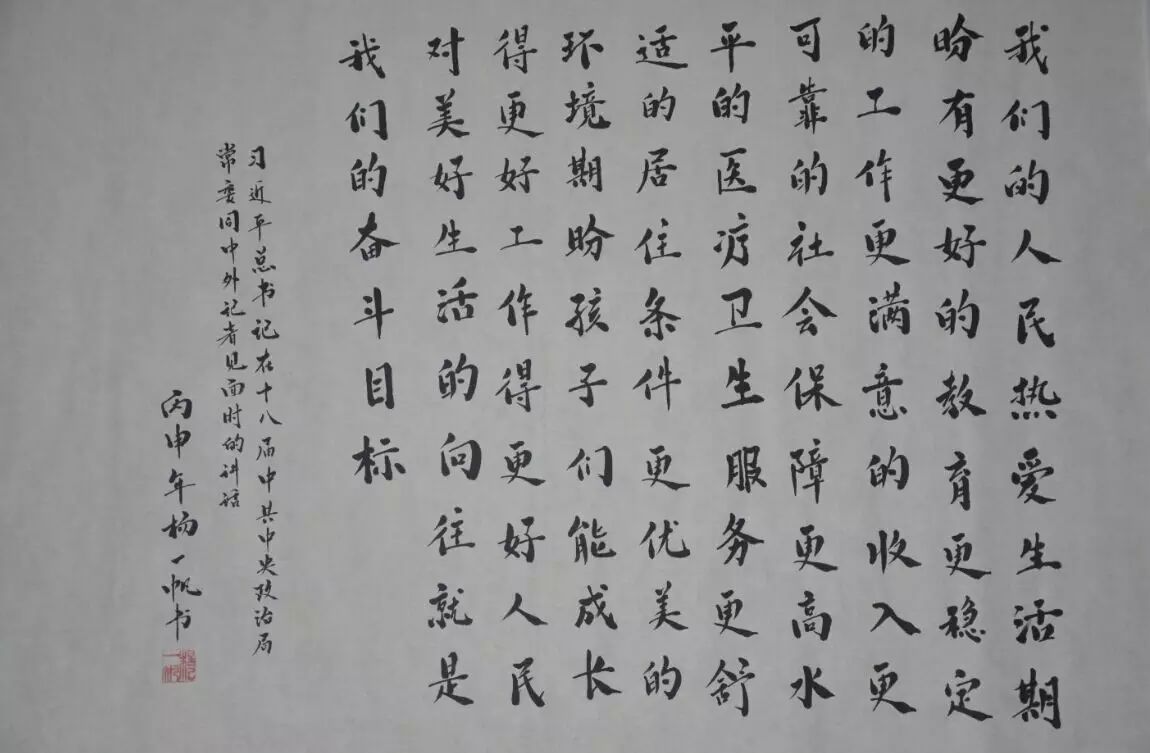 我们的人民热爱生活期
盼有更好的教育更稳定
的工作更满意的收入更
可靠的社会保障更高水
平的医疗卫生服务更舒
适的居住条件更优美的
环境期盼孩子们能成长
得更好工作得更好人民
对美好生活的向往就是
我们的奋斗目标
习近平总书记在十八届中共中央政治局
常委同中外记者见面时的讲话
丙申年杨一帆书